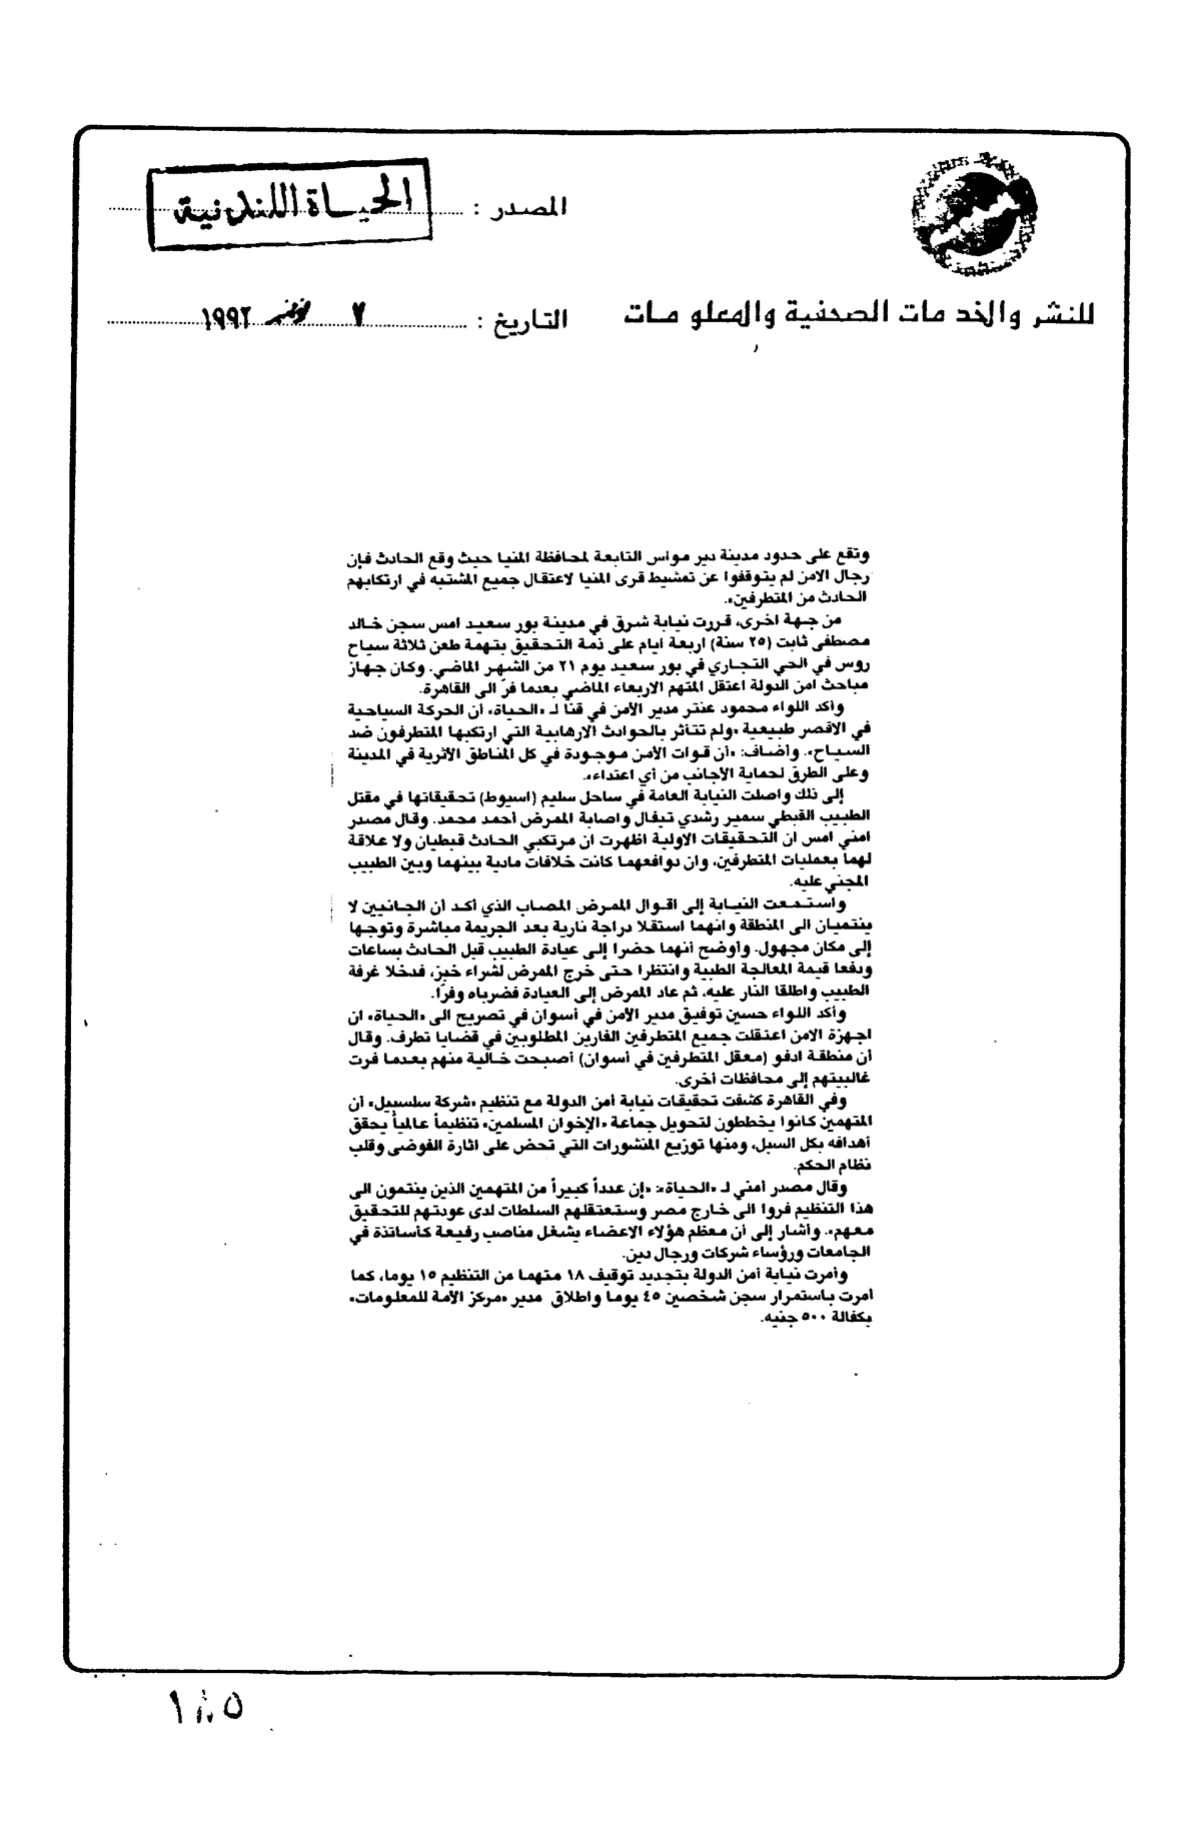 المصدر : الحياة اللندنية
للنشر والخدمات الصحفية والمعلومات
التاريخ : ٧ نوفمبر ١٩٩٢
وتقع على حدود مدينة دير مواس التابعة لمحافظة المنيا حيث وقع الحادث فإن
رجال الامن لم يتوقفوا عن تمشيط قرى المنيا لاعتقال جميع المشتبه في ارتكابهم
الحادث من المتطرفين».
من جهة اخرى، قررت نيابة شرق في مدينة بور سعيد امس سجن خالد
مصطفى ثابت (٢٥ سنة) اربعة ايام على ذمة التحقيق بتهمة طعن ثلاثة سياح
روس في الحي التجاري في بور سعيد يوم ٢١ من الشهر الماضي. وكان جهاز
مباحث امن الدولة اعتقل المتهم الاربعاء الماضي بعدما فرّ الى القاهرة.
وأكد اللواء محمود عنتر مدير الأمن في قنا لـ «الحياة» أن الحركة السياحية
في الاقصر طبيعية «ولم تتأثر بالحوادث الارهابية التي ارتكبها المتطرفون ضد
السياح». وأضاف: «أن قوات الأمن موجودة في كل المناطق الأثرية في المدينة
وعلى الطرق لحماية الأجانب من أي اعتداء».
إلى ذلك واصلت النيابة العامة في ساحل سليم (اسيوط) تحقيقاتها في مقتل
الطبيب القبطي سمير رشدي تيفال واصابة الممرض أحمد محمد. وقال مصدر
امني امس ان التحقيقات الاولية اظهرت ان مرتكبي الحادث قبطيان ولا علاقة
لهما بعمليات المتطرفين، وان دوافعهما كانت خلافات مادية بينهما وبين الطبيب
المجني عليه.
واستمعت النيابة إلى اقوال الممرض المصاب الذي أكد أن الجانيين لا
ينتميان الى المنطقة وانهما استقلا دراجة نارية بعد الجريمة مباشرة وتوجها
إلى مكان مجهول. وأوضح أنهما حضرا إلى عيادة الطبيب قبل الحادث بساعات
ودفعا قيمة المعالجة الطبية وانتظرا حتى خرج الممرض لشراء خبز، فدخلا غرفة
الطبيب واطلقا النار عليه، ثم عاد الممرض إلى العيادة فضرباه وفرّا.
وأكد اللواء حسين توفيق مدير الأمن في أسوان في تصريح الى «الحياة» ان
اجهزة الامن اعتقلت جميع المتطرفين الفارين المطلوبين في قضايا تطرف. وقال
أن منطقة ادفو (معقل المتطرفين في أسوان) أصبحت خالية منهم بعدما فرت
غالبيتهم إلى محافظات أخرى.
وفي القاهرة كشفت تحقيقات نيابة أمن الدولة مع تنظيم «شركة سلسبيل» أن
المتهمين كانوا يخططون لتحويل جماعة «الإخوان المسلمين» تنظيماً عالمياً يحقق
أهدافه بكل السبل، ومنها توزيع المنشورات التي تحض على اثارة الفوضى وقلب
نظام الحكم.
وقال مصدر أمني لـ «الحياة»: «إن عدداً كبيراً من المتهمين الذين ينتمون الى
هذا التنظيم فروا الى خارج مصر وستعتقلهم السلطات لدى عودتهم للتحقيق
معهم». وأشار إلى أن معظم هؤلاء الاعضاء يشغل مناصب رفيعة كأساتذة في
الجامعات ورؤساء شركات ورجال دين.
وأمرت نيابة أمن الدولة بتجديد توقيف ١٨ متهما من التنظيم ١٥ يوما، كما
أمرت باستمرار سجن شخصين ٤٥ يوما واطلاق مدير «مركز الأمة للمعلومات»
بكفالة ٥٠٠ جنيه.
١٨٥